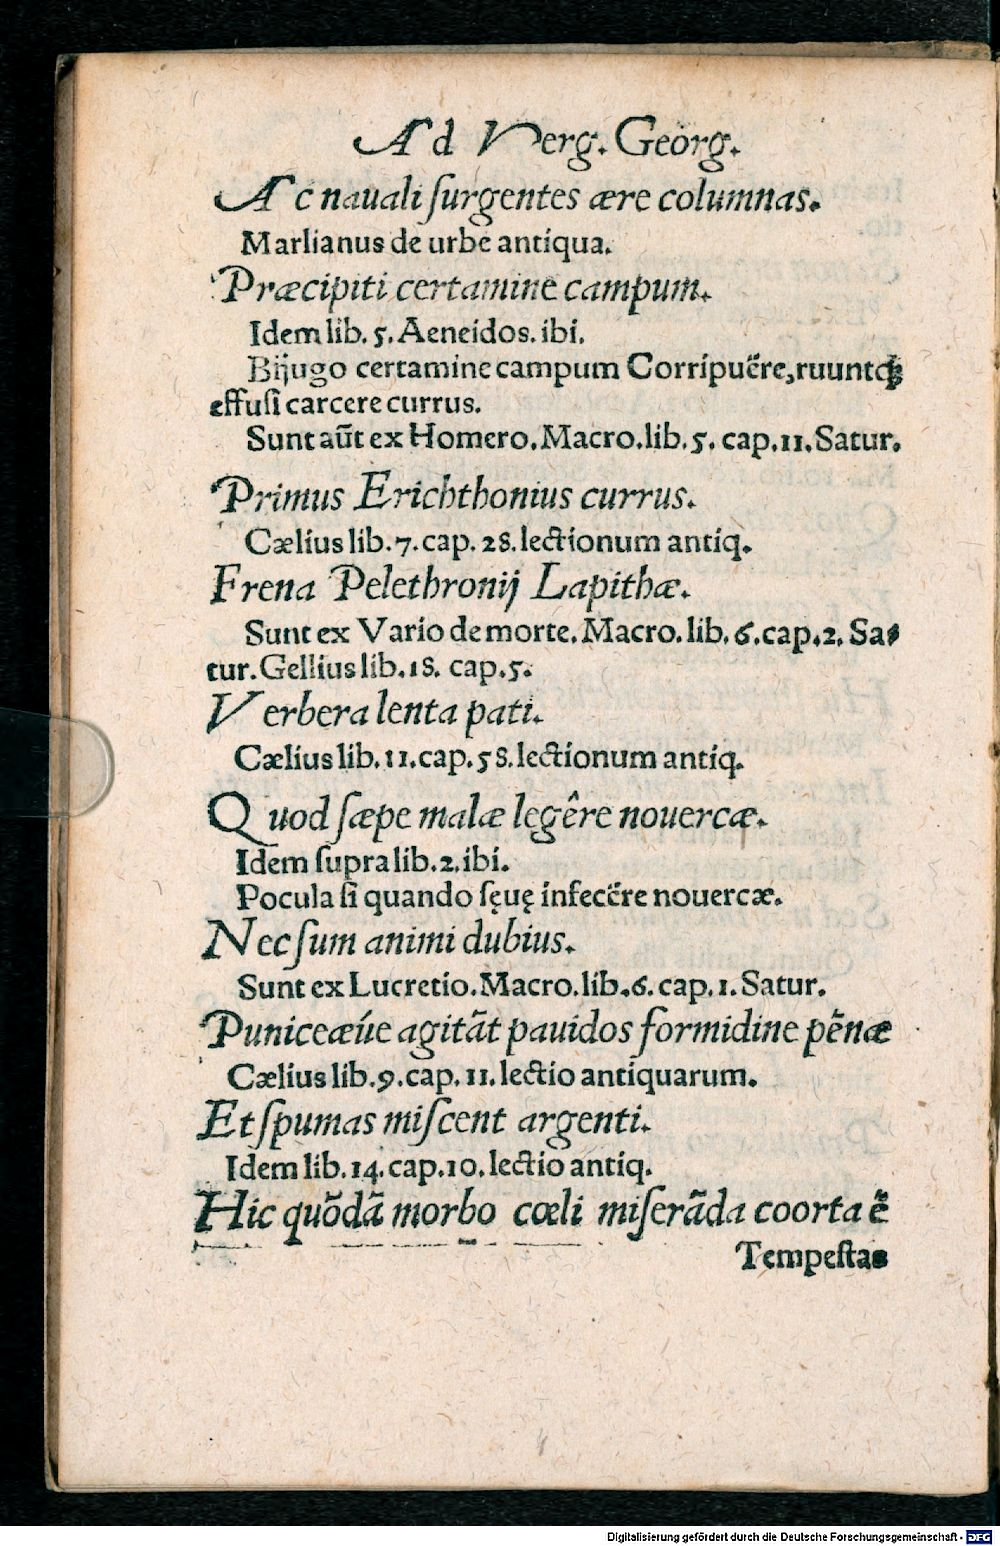 Ad Verg. Georg.
Ac nauali ſurgentes ære columnas.
Marlianus de urbe antiqua.
Præcipiti certamine campum.
Idem lib. 5. Aeneidos. ibi.
Bijugo certamine campum Corripuêre, ruuntq́;
effuſi carcere currus.
Sunt aũt ex Homero. Macro. lib. 5. cap. 11. Satur.
Primus Erichthonius currus.
Cælius lib. 7. cap. 28. lectionum antiq.
Frena Pelethronij Lapithæ.
Sunt ex Vario de morte. Macro. lib. 6. cap. 2. Sa-
tur. Gellius lib. 18. cap. 5.
Verbera lenta pati.
Cælius lib. 11. cap. 58. lectionum antiq.
Quod ſæpe malæ legêre nouercæ.
Idem ſupra lib. 2. ibi.
Pocula ſi quando ſęuę infecêre nouercæ.
Nec ſum animi dubius.
Sunt ex Lucretio. Macro. lib. 6. cap. 1. Satur.
Puniceæúe agitãt pauidos formidine pẽnæ
Cælius lib. 9. cap. 11. lectio antiquarum.
Et ſpumas miſcent argenti.
Idem lib. 14. cap. 10. lectio antiq.
Hic quõdã morbo cœli miſerãda coorta ẽ
Tempeſtas
Digitalisierung gefördert durch die Deutsche Forschungsgemeinschaft - DFG